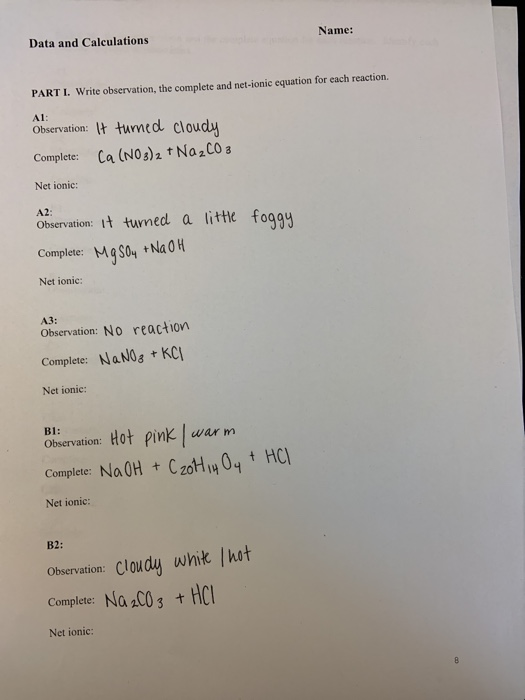 Name:
Data and Calculations
PART I. Write observation, the complete and net-ionic equation for each reaction.
A1:
Observation: It turned cloudy
Complete: Ca(NO3)2 + Na2CO3
Net ionic:
A2:
Observation: It turned a little foggy
Complete: MgSO4 + NaOH
Net ionic:
A3:
Observation: No reaction
Complete: NaNO3 + KCl
Net ionic:
B1:
Observation: Hot pink / warm
Complete: NaOH + C20H14O4 + HCl
Net ionic:
B2:
Observation: Cloudy white / hot
Complete: Na2CO3 + HCl
Net ionic:
8